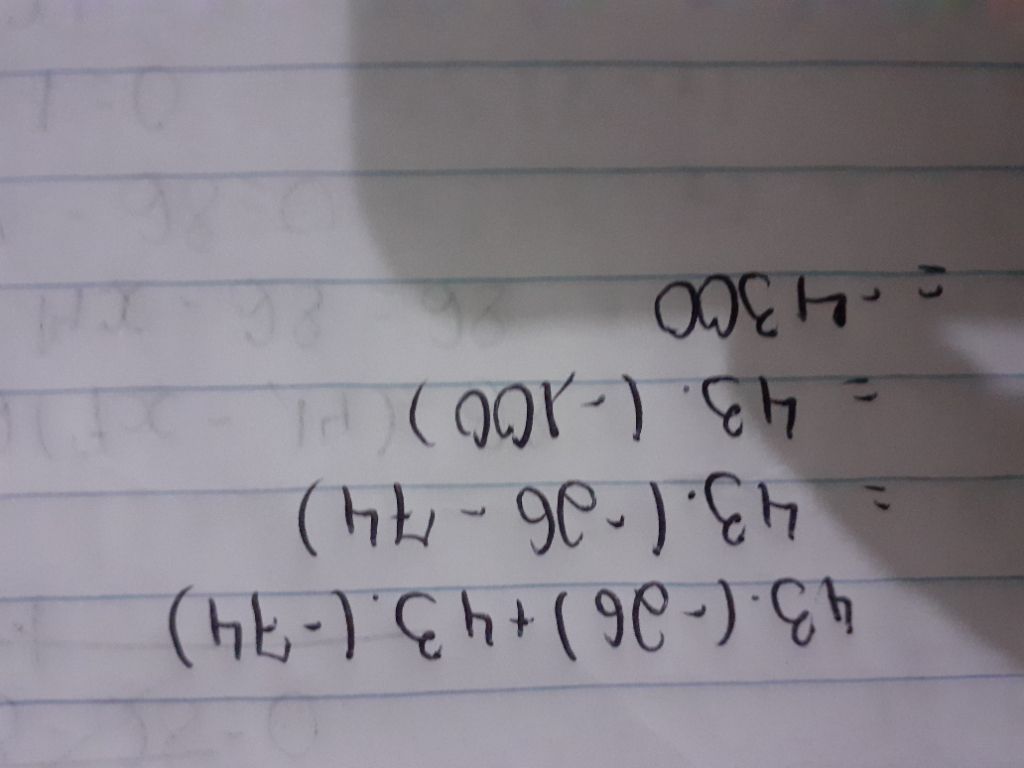 43.(-26)+43.(-74)
= 43.(-26-74)
= 43.(-100)
= -4300